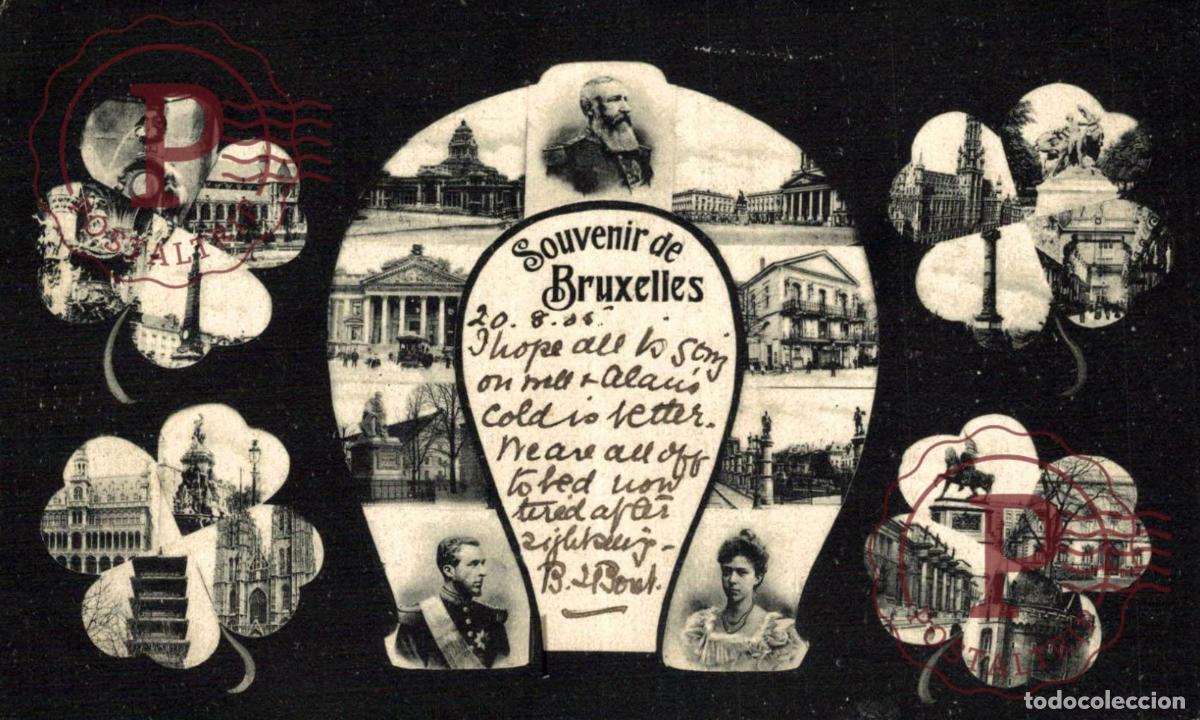 Souvenir de
Bruxelles
20.8.05.
I hope all is going
on well & Alan's
cold is better.
We are all off
to bed now
tired after
sightseeing -
B.
P
POSTALTRIS
P
POSTALTRIS
todocoleccion